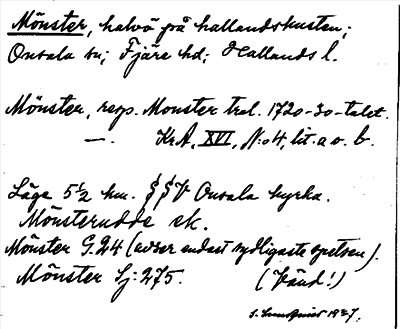 Mönster, halvö på hallandskusten;
Onsala sn; Fjäre hd; Hallands l.
Mönster, resp. Monster tral. 1720-30-talet.
—. KrA, XVI, N:o 4, lit. a o. b.
Läge 5 1/2 km. SSV Onsala kyrka.
Mönsterudde ek.
Mönster G.24 (avser endast sydligaste spetsen).
Mönster Sj: 275. (Vänd!)
1927.